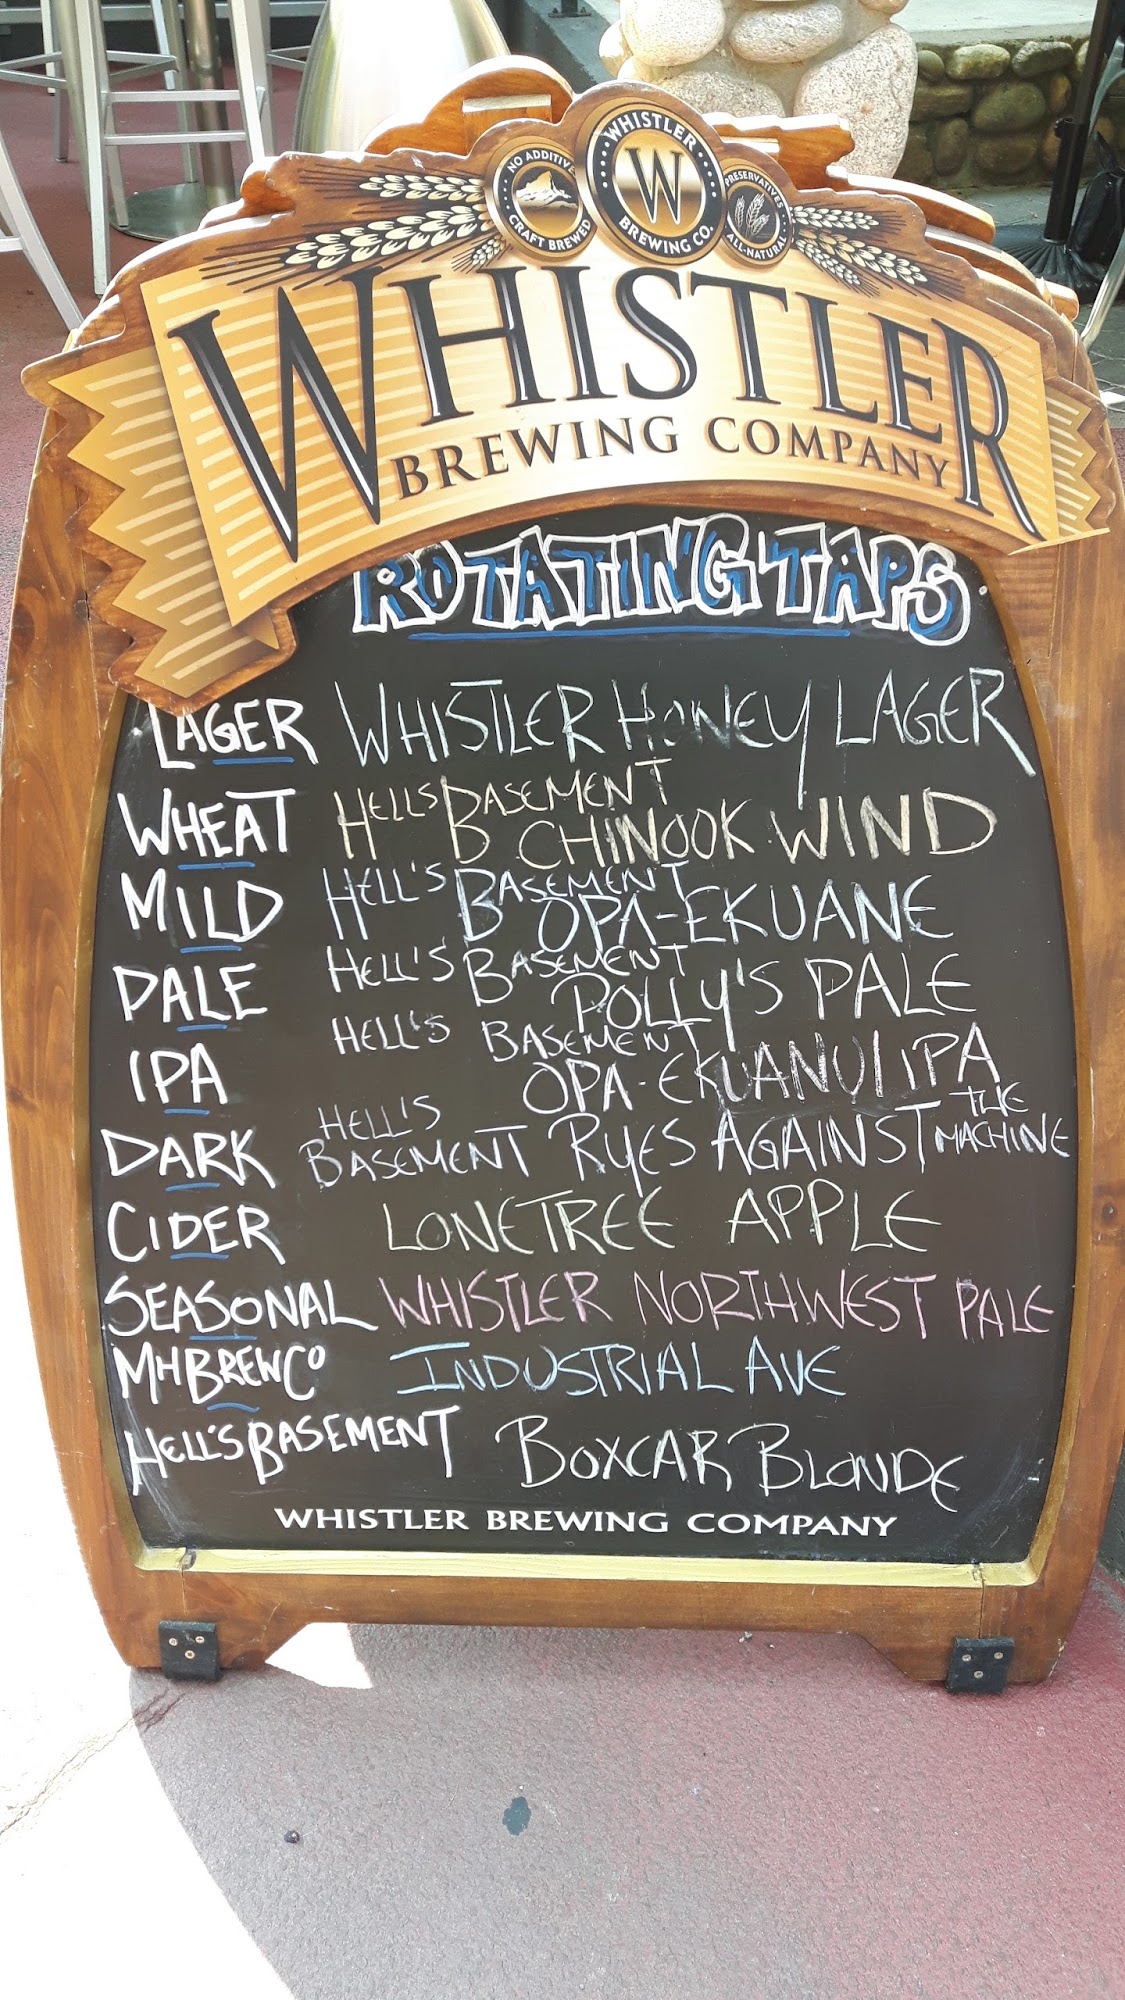 WHISTLER
W
BREWING CO.
NO ADDITIV
CRAFT BREWED
PRESERVATIVES
ALL-NATURAL
WHISTLER
BREWING COMPANY
ROTATING TAPS
LAGER WHISTLER HONEY LAGER
WHEAT HELLS BASEMENT
B CHINOOK WIND
MILD HELL'S BASEMENT
B OPA-EKUANE
PALE HELL'S BASEMENT
POLLY'S PALE
IPA HELL'S BASEMENT
OPA-EKUANU IPA
DARK HELL'S BASEMENT RYES AGAINST THE MACHINE
CIDER LONETREE APPLE
SEASONAL WHISTLER NORTHWEST PALE
MHBREWCO INDUSTRIAL AVE
HELL'S BASEMENT BOXCAR BLONDE
WHISTLER BREWING COMPANY